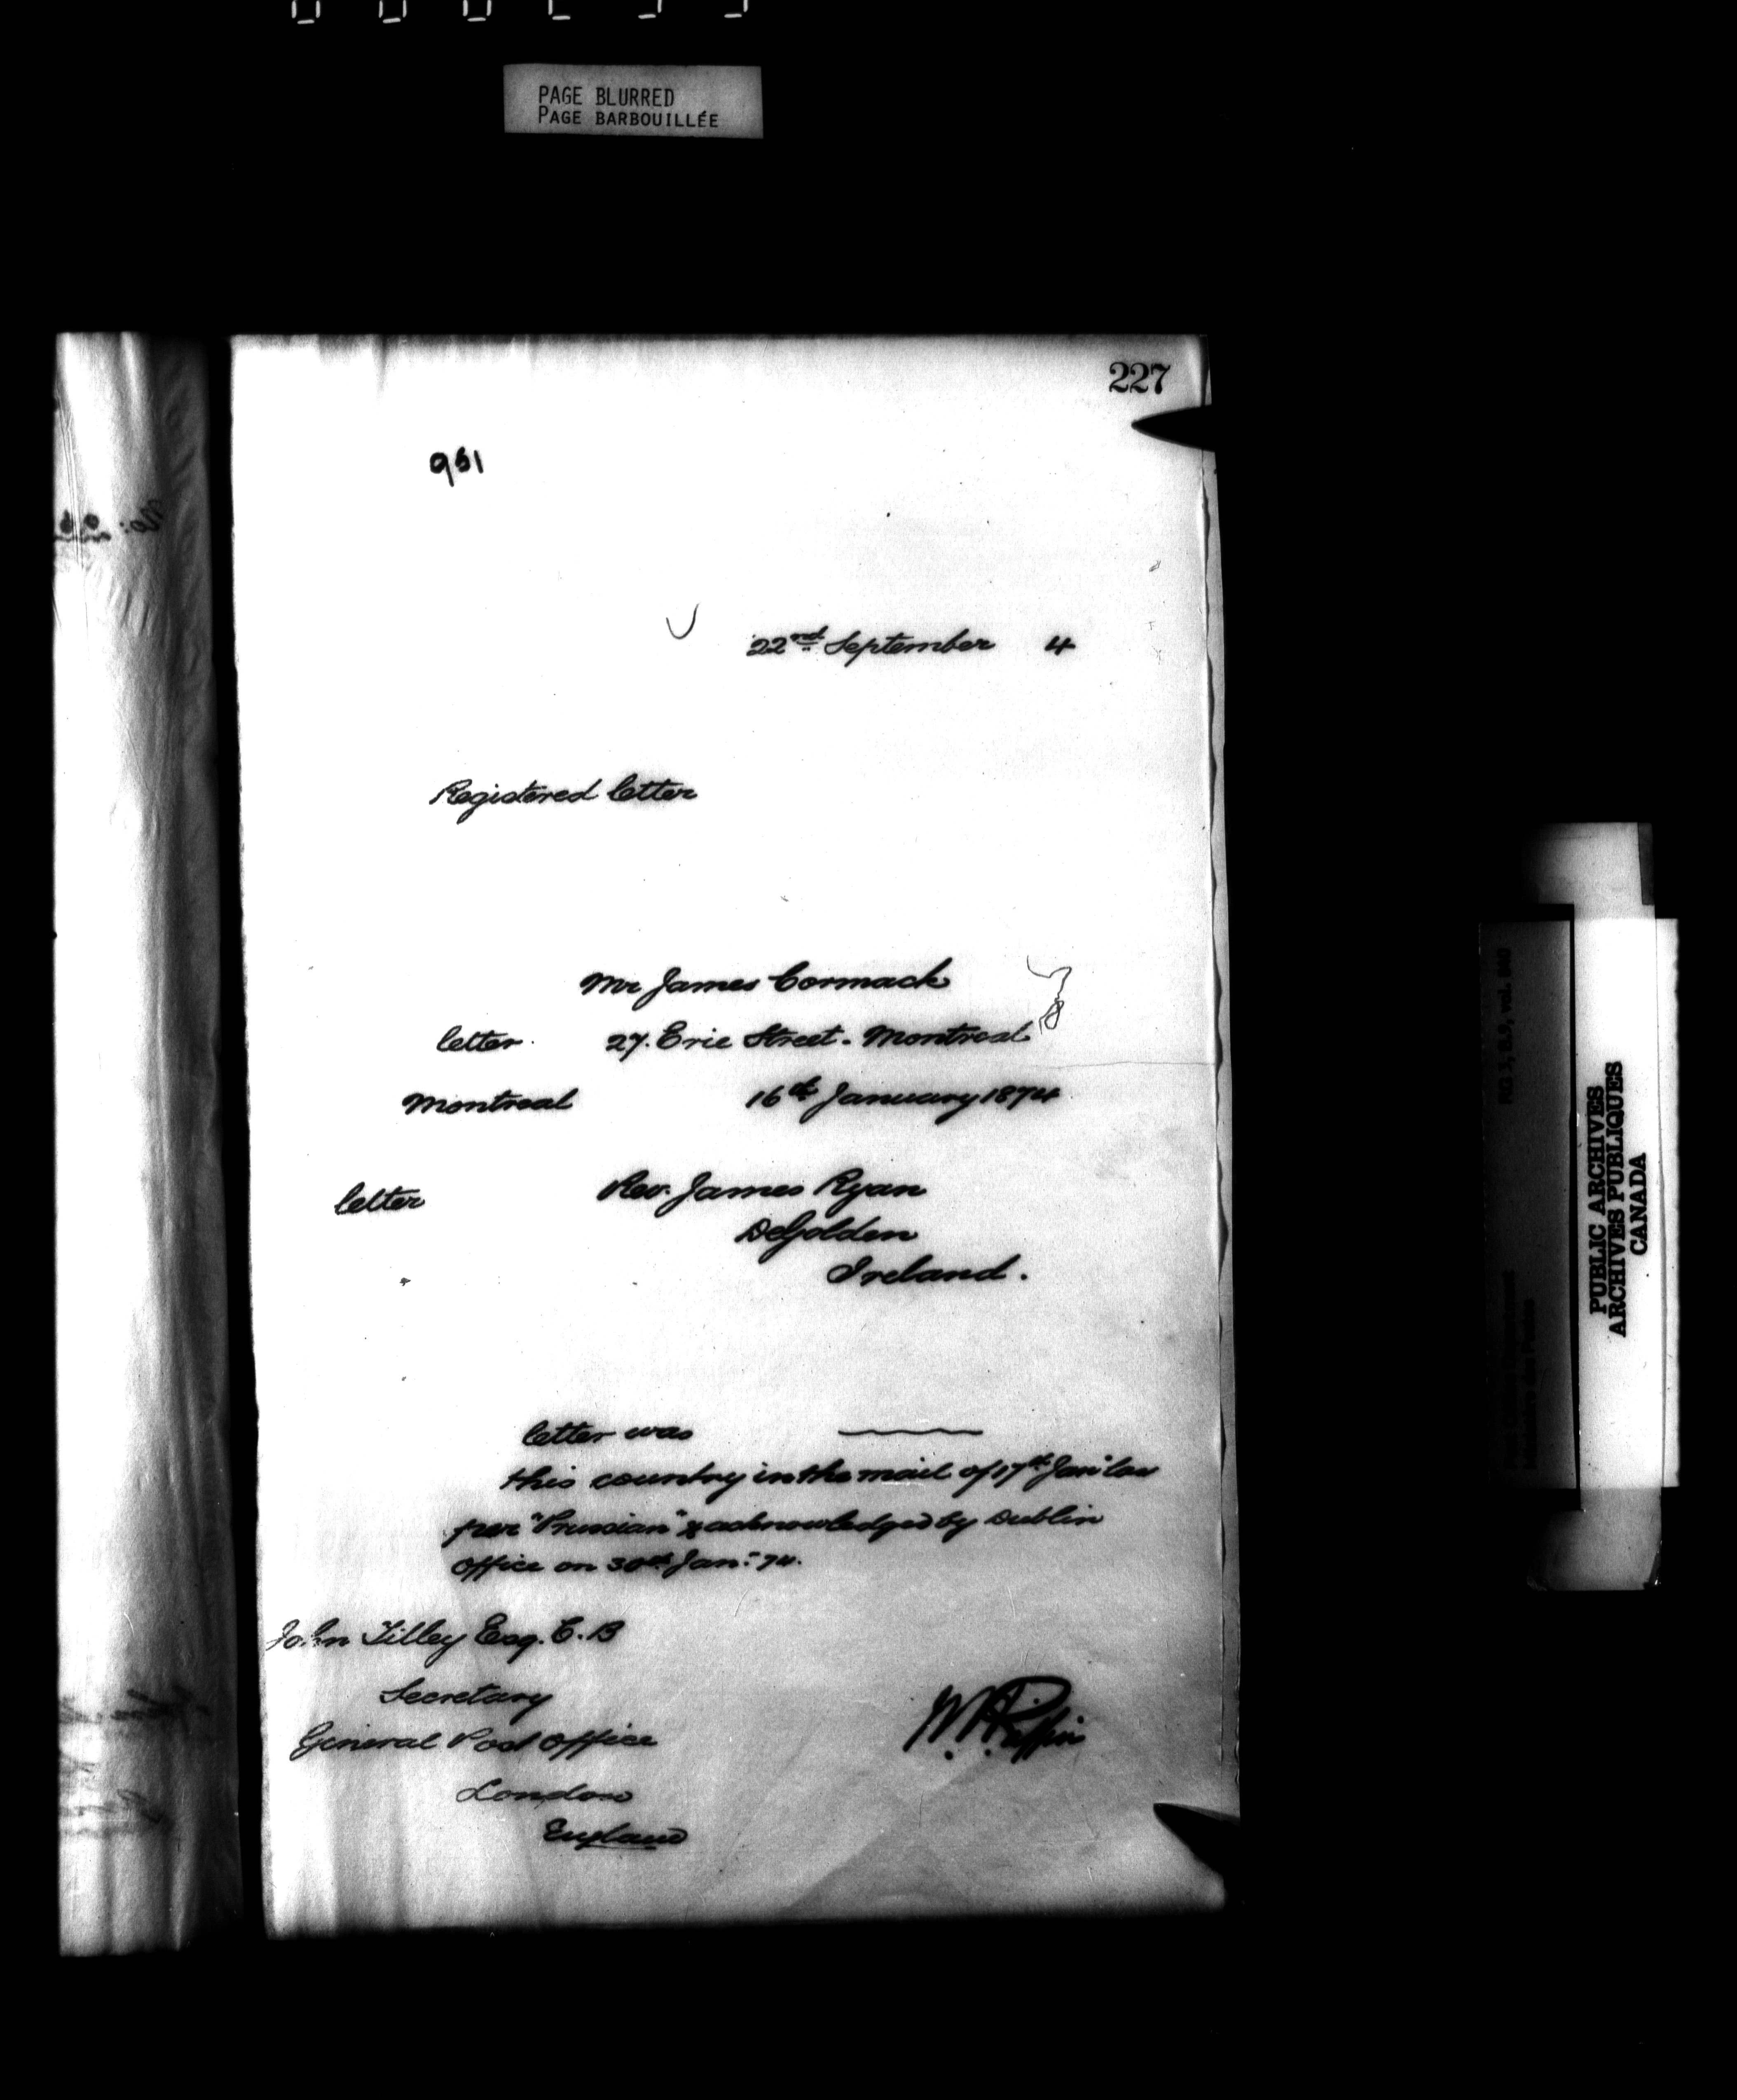 PAGE BLURRED
PAGE BARBOUILLÉE
227
951
22nd September 4
Registered letter
Mr James Cormack
letter. 27. Erie Street. Montreal
Montreal 16th January 1874
letter Rev. James Ryan
Golden
Ireland.
letter was
this country in the mail of 17th Jan'y
per "Prussian" & acknowledged by Dublin
Office on 30th Jan: 74.
John Tilley Esq. C.B
Secretary
General Post Office
London
England
PUBLIC ARCHIVES
ARCHIVES PUBLIQUES
CANADA
RG 3,
Post Office Department
Ministère des Postes